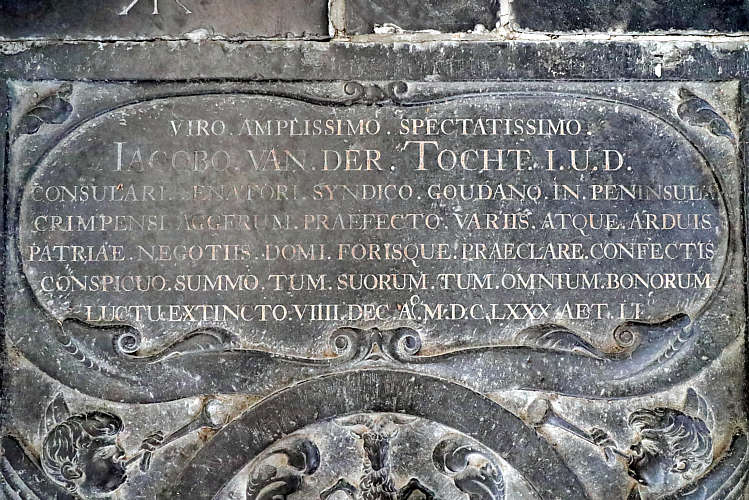 VIRO. AMPLISSIMO. SPECTATISSIMO.
IACOBO. VAN. DER. TOCHT. I.U.D.
CONSULARI. SENATORI. SYNDICO. GOUDANO. IN. PENINSULA
CRIMPENSI. AGGERUM. PRAEFECTO. VARIIS. ATQUE. ARDUIS
PATRIAE. NEGOTIIS. DOMI. FORISQUE. PRAECLARE. CONFECTIS
CONSPICUO. SUMMO. TUM. SUORUM. TUM. OMNIUM. BONORUM
LUCTU. EXTINCTO. VIIII. DEC. Aº. M.D.C.LXXX. AET. LI.